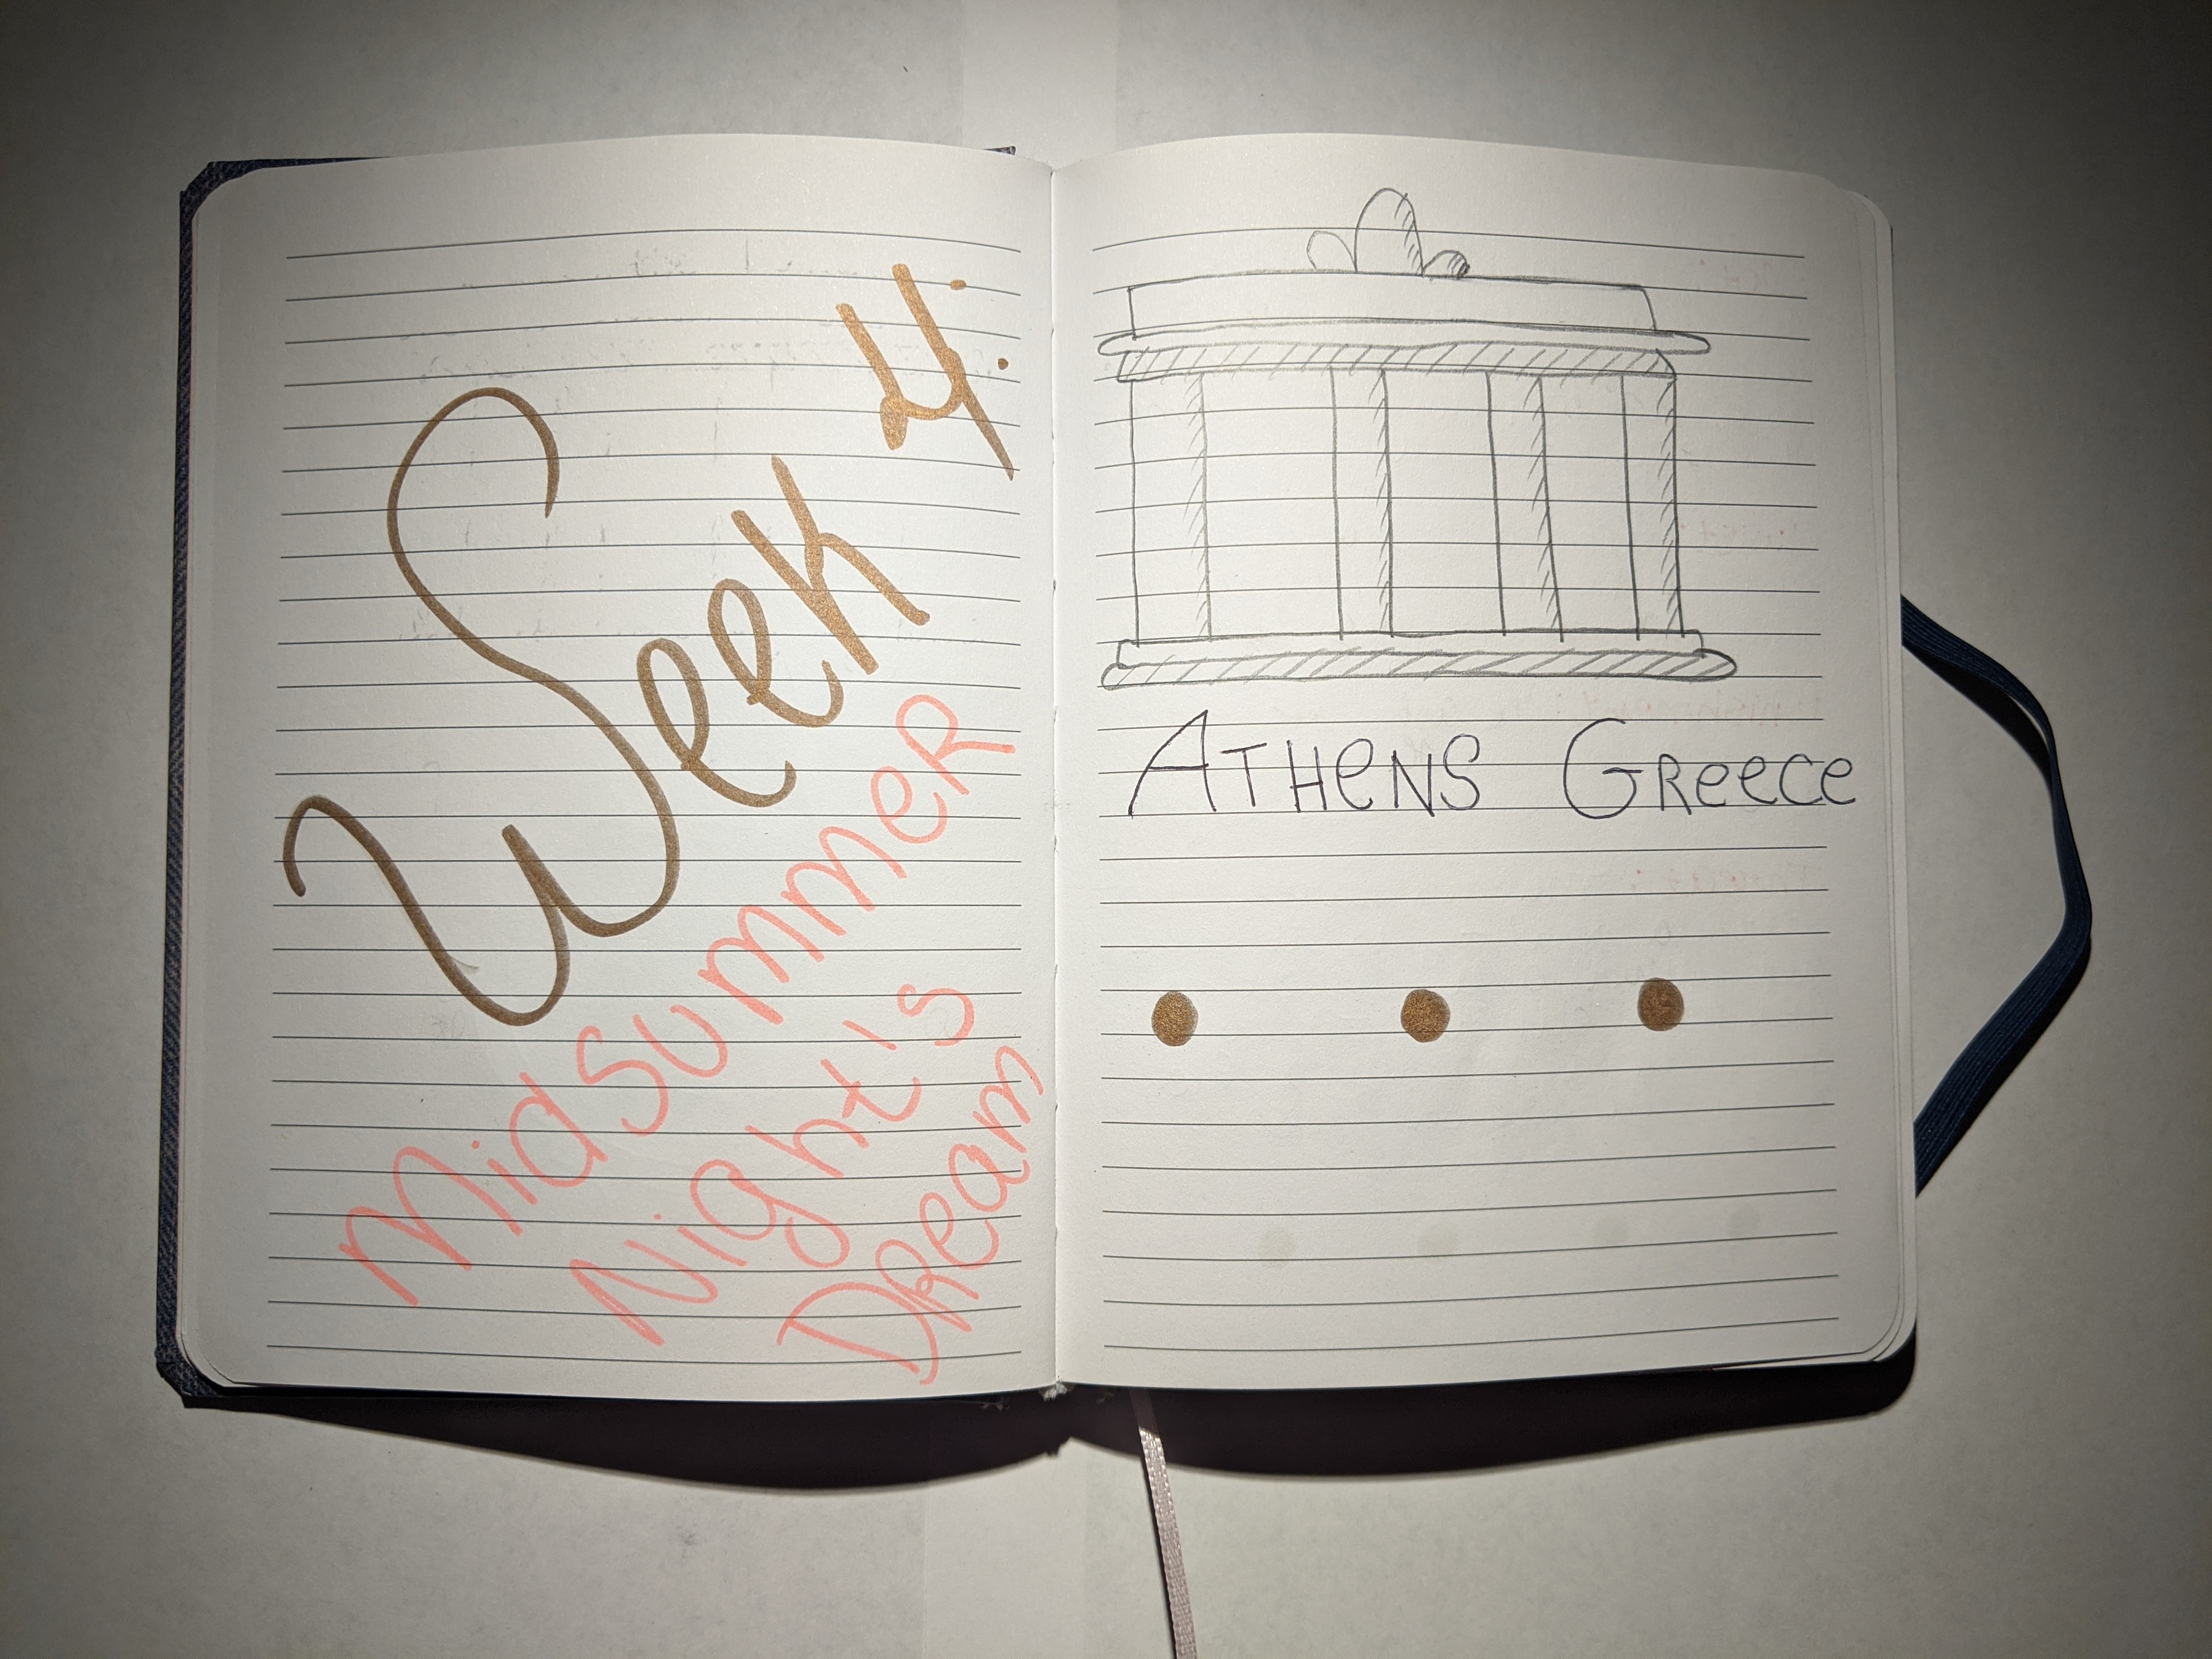 Week 4:
Midsummer
Night's
Dream
Athens Greece